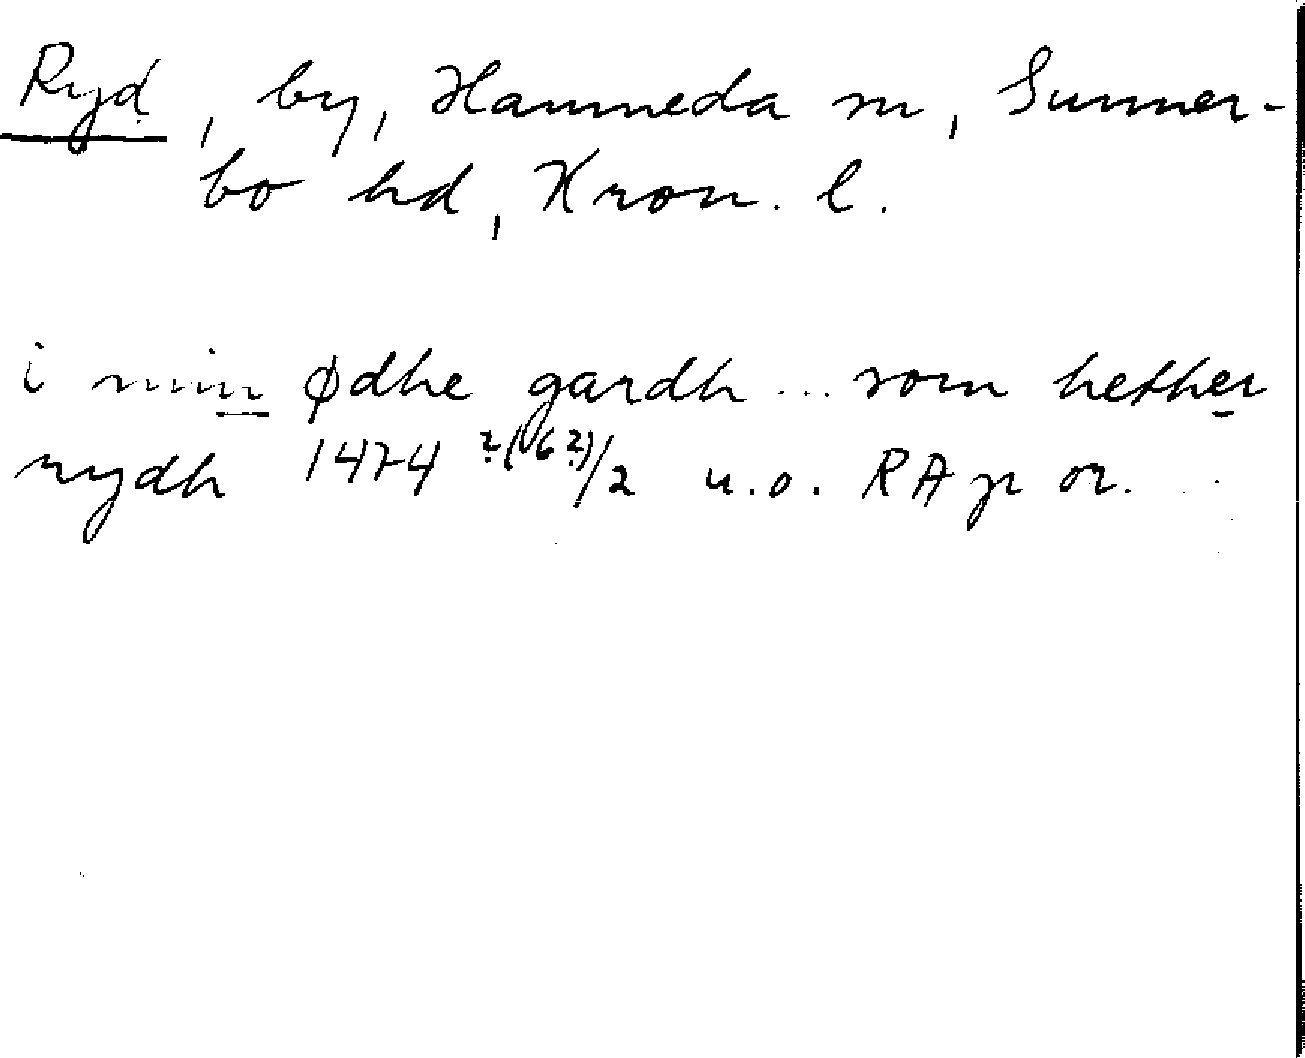 Ryd, by, Hamneda sn, Sunner-
bo hd, Kron. l.
i minn ødhe gardh ... som hether
rydh 1474 ?(V6?)/2 u.o. RAp or.